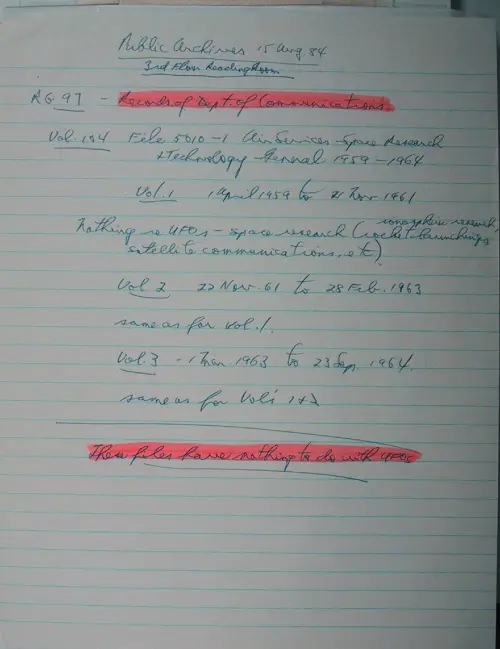 Public Archives 15 Aug. 84
3rd Floor Reading Room
RG. 97 - Records of Dept. of Communications
Vol. 184 File 5010-1 Air Services - Space Research
+ Technology - General 1959-1964
Vol. 1 1 April 1959 to 21 Nov. 1961
Nothing re UFOs - space research (ionosphere research, rocket launchings
satellite communications, etc)
Vol 2 22 Nov. 61 to 28 Feb. 1963
same as for Vol. 1.
Vol. 3 - 1 Mar. 1963 to 23 Sep. 1964.
same as for Vol's 1+2
These files have nothing to do with UFOs